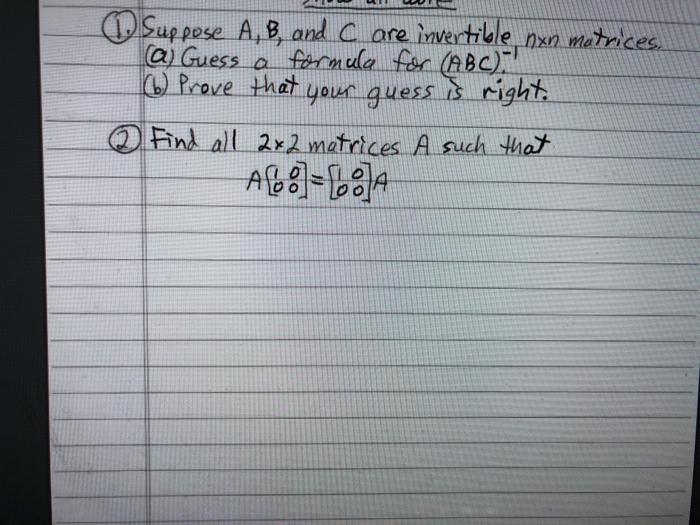 ① Suppose A, B, and C are invertible nxn matrices.
(a) Guess a formula for (ABC)⁻¹.
(b) Prove that your guess is right.
② Find all 2x2 matrices A such that
A[1 0; 0 0] = [1 0; 0 0]A